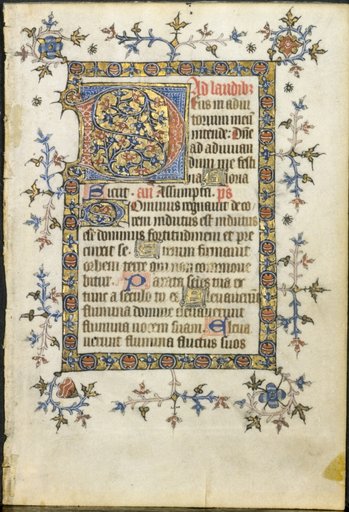 Ad laudibz
Eus in adiu
torium meū
intende. Dn̄e
ad adiuuan
dum me festi
na. Gloria
Sicut. an̄ Assumpta. ps
Dominus regnauit deco
rem indutus est indutus
est dominus fortitudinem et pre
cinxit se. Etenim firmauit
orbem terre qui non commoue
bitur. Parata sedes tua ex
tunc a seculo tu es. Eleuauerūt
flumina domine eleuauerunt
flumina uocem suam. Eleua
uerunt flumina fluctus suos